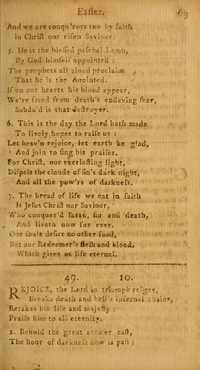 Easter. 63
And we are conqu'rors too by faith
In Christ our risen Saviour.
5. He is the blessed paschal Lamb,
By God himself appointed :
The prophets all aloud proclaim
That he is the Anointed.
If on our hearts his blood appear,
We're freed from death's enslaving fear,
Subdu'd is that destroyer.
6. This is the day the Lord hath made
To lively hopes to raise us :
Let heav'n rejoice, let earth be glad,
And join to sing his praises.
For Christ, our everlasting light,
Dispels the clouds of sin's dark night,
And all the pow'rs of darkness.
7. The bread of life we eat in faith
Is Jesus Christ our Saviour,
Who conquer'd satan, sin and death,
And liveth now for ever.
Our souls desire no other food,
But our Redeemer's flesh and blood,
Which gives us life eternal.
49. 10.
REJOICE, the Lord in triumph reigns,
Breaks death and hell's infernal chains,
Retakes his life and majesty ;
Praise him to all eternity.
2. Behold the great accuser cast,
The hour of darkness now is past ;